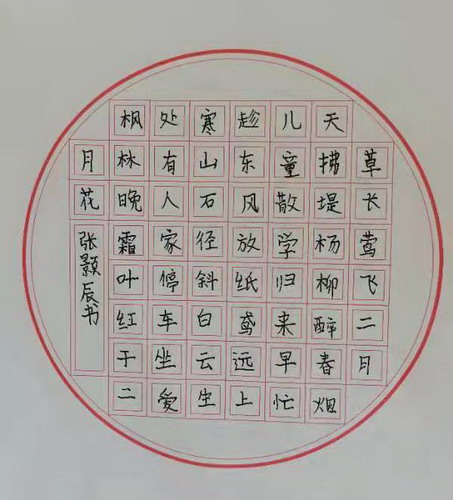 草长莺飞二月
天拂堤杨柳醉春烟
儿童散学归来早忙
趁东风放纸鸢远上
寒山石径斜白云生
处有人家停车坐爱
枫林晚霜叶红于二
月花
张颢辰书